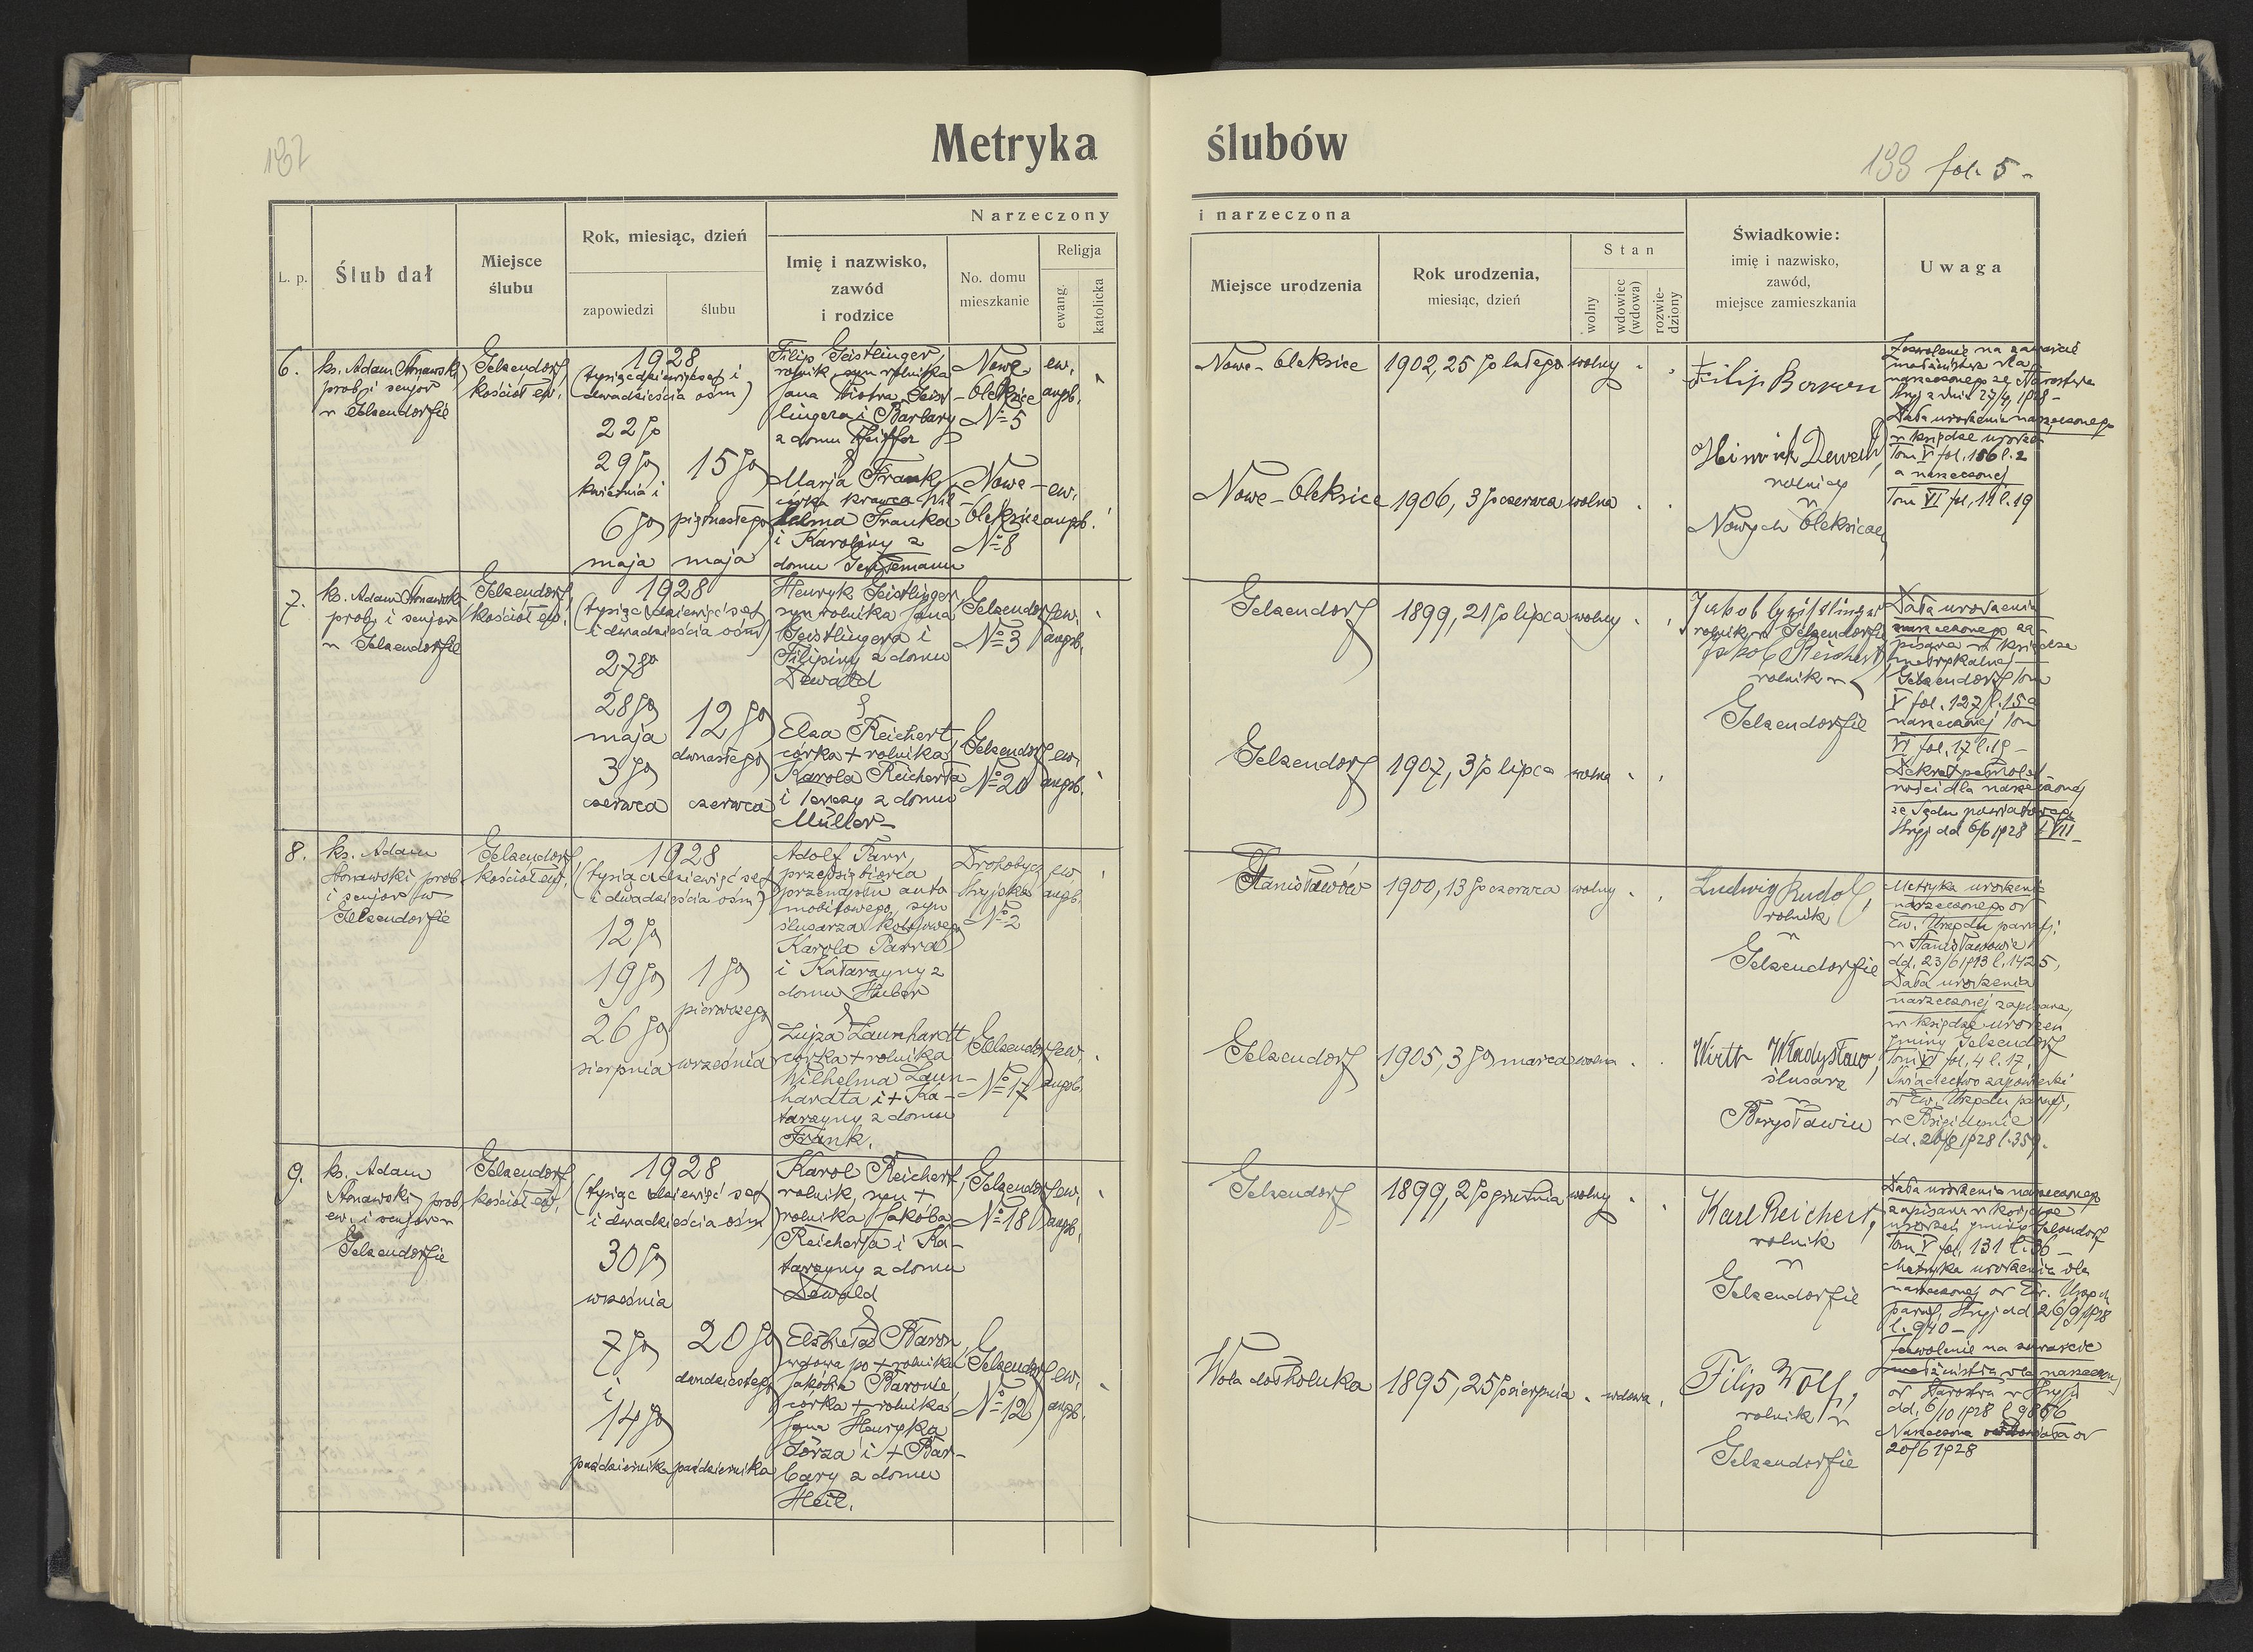 137
Metryka ślubów
133 fol. 5 -
Narzeczony i narzeczona
L. p.
Ślub dał
Miejsce
ślubu
Rok, miesiąc, dzień
zapowiedzi
ślubu
Imię i nazwisko,
zawód
i rodzice
No. domu
mieszkanie
Religja
ewang.
katolicka
Miejsce urodzenia
Rok urodzenia,
miesiąc, dzień
Stan
wolny
wdowiec
(wdowa)
rozwie-
dziony
Świadkowie:
imię i nazwisko,
zawód,
miejsce zamieszkania
Uwaga
6.
ks. Adam
prob. i senjor
w Gelsendorfie
Gelsendorf,
kościół ew.
1928
(tysiąc dziewięćset i
dwadzieścia ośm)
22go
29go
kwietnia i
6go
maja
15go
piętnastego
maja
Filip Geistlinger,
rolnik, syn rolnika
Jana Piotra Geist-
lingera i Barbary
z domu Pfeiffer
&
Marja Frank,
córka krawca Wil-
helma Franka
i Karoliny z
domu
Nowe
-Oleksice
No 5
ew.
augb.
Nowe-
-Oleksice
No 8
ew.
augb.
Nowe-Oleksice
1902, 25go lutego
wolny
Nowe-Oleksice
1906, 3go czerwca
wolna
Filip Baron
Heinrich Dewald,
rolnicy
w
Nowych Oleksicach
Zezwolenie na zawarcie
małżeństwa dla
narzeczonego ze Starostwa
Stryj z dnia 27/4 1928 -
Data urodzenia narzeczonego
w księdze urodzeń
Tom V fol. 156 l. 2
a narzeczonej
Tom VI fol. 11 l. 19
7.
ks. Adam
prob. i senjor
w Gelsendorfie
Gelsendorf,
kościół ew.
1928
(tysiąc dziewięćset
i dwadzieścia ośm)
27go
28go
maja
3go
czerwca
12go
dwunastego
czerwca
Henryk Geistlinger,
syn rolnika Jana
Geistlingera i
Filipiny z domu
Dewald
&
Elza Reichert,
córka + rolnika
Karola Reicherta
i Terezy z domu
Müller -
Gelsendorf
No 3
ew.
augsb.
Gelsendorf
No 20
ew.
augsb.
Gelsendorf
1899, 21go lipca
wolny
Gelsendorf
1907, 3go lipca
wolna
Jakob
rolnik w Gelsendorfie
Jakob Reichert,
rolnik w
Gelsendorfie
Data urodzenia
narzeczonego za-
pisana w księdze
metrykalnej
Gelsendorf Tom
V fol. 127 l. 15 a
narzeczonej Tom
VI fol. 17 l. 19 -
Dekret pełnolet-
ności dla narzeczonej
ze Sądu powiatowego
Stryj dd 6/6 1928
8.
ks. Adam
prob.
i senjor w
Gelsendorfie
Gelsendorf,
kościół ew.
1928
(tysiąc dziewięćset
i dwadzieścia ośm)
12go
19go
26go
sierpnia
1go
pierwszego
września
Adolf Parr,
przedsiębiorca
przemysłu auto-
mobilowego, syn
ślusarza kolejowego
Karola Parra
i Katarzyny z
domu Huber
&
Lujza Launhardt
córka + rolnika
Wilhelma Laun-
hardta i + Ka-
tarzyny z domu
Frank.
Drohobycz
Stryjska
No 2
ew.
augb.
Gelsendorf
No 17
ew.
augsb.
Stanisławów
1900, 13go czerwca
wolny
Gelsendorf
1905, 3go marca
wolna
Ludwig Rudolf,
rolnik
w
Gelsendorfie
Wirth Władysław,
ślusarz
w
Borysławiu
Metryka urodzenia
narzeczonego od
Ew. Urzędu paraf.
w Stanisławowie
dd. 23/6 1913 l. 1425,
Data urodzenia
narzeczonej zapisana
w księdze urodzeń
gminy Gelsendorf
Tom VI fol. 4 l. 17.
Świadectwo zapowiedzi
od Ew. Urzędu paraf.
w Brigidynie
dd. 26/8 1928 l. 359.
9.
ks. Adam
prob.
ew. i senjor w
Gelsendorfie
Gelsendorf,
kościół ew.
1928
(tysiąc dziewięćset
i dwadzieścia ośm)
30go
września
7go
i
14go
października
20go
dwudziestego
października
Karol Reichert,
rolnik, syn +
rolnika Jakóba
Reicherta i Ka-
tarzyny z domu
Dewald
&
Elżbieta Baron
wdowa po + rolniku
Jakóbie Baronie,
córka + rolnika
Jana Henryka
Görza i + Bar-
bary z domu
Heil.
Gelsendorf
No 18
ew.
augb.
Gelsendorf
No 12
ew.
augb.
Gelsendorf
1899, 2go grudnia
wolny
Wola dołhołucka
1895, 25go sierpnia
wdowa
Karl Reichert,
rolnik
w
Gelsendorfie
Filip Wolf,
rolnik w
Gelsendorfie
Data urodzenia narzeczonego
zapisana w księdze
urodzeń gminy Gelsendorf
Tom V fol. 131 l. 36 -
Metryka urodzenia dla
narzeczonej od Ew. Urzędu
paraf. Stryj dd 26/9 1928
l. 940 -
Zezwolenie na zawarcie
małżeństwa dla narzeczonej
od Starostwa w Stryju
dd. 6/10 1928
Narzeczona owdowiała od
20/6 1928